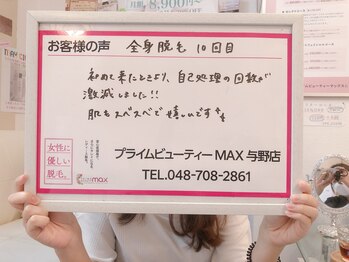 お客様の声　全身脱毛 10回目
初めて来たときより、自己処理の回数が
激減しました!!
肌もスベスベで嬉しいです
女性に
優しい
脱毛。
max
プライムビューティーMAX 与野店
TEL.048-708-2861